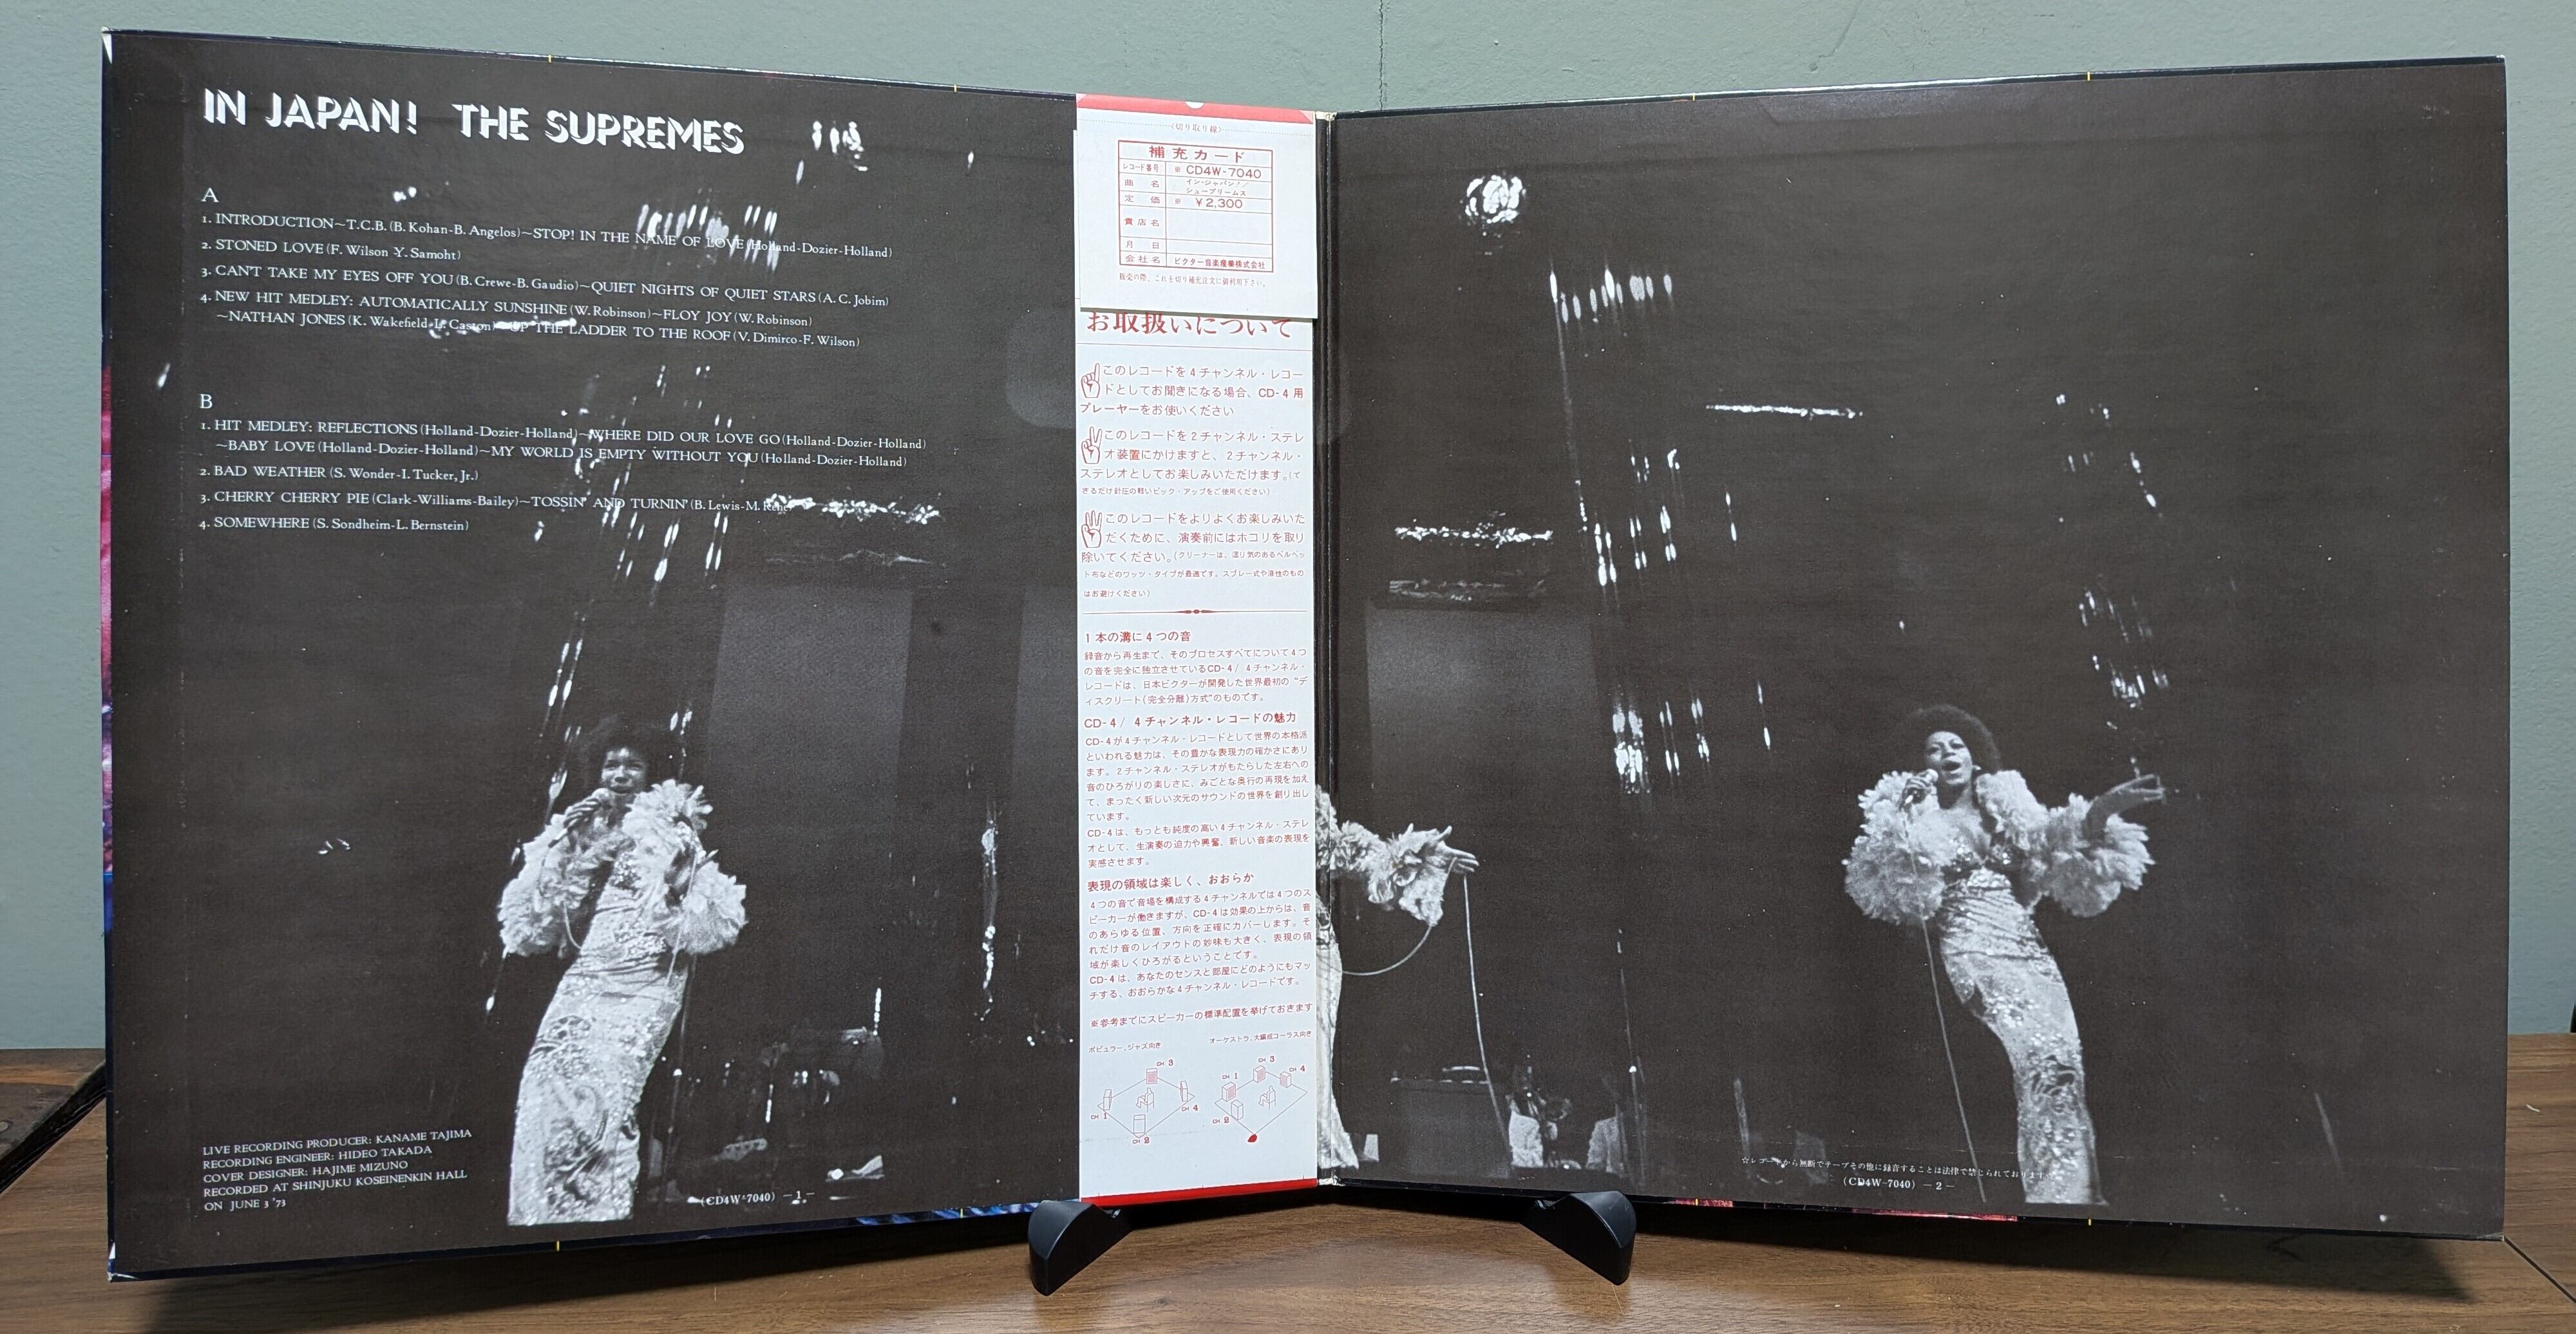 IN JAPAN! THE SUPREMES
A
1. INTRODUCTION~T.C.B. (B. Kohan-B. Angelos)~STOP! IN THE NAME OF LOVE (Holland-Dozier-Holland)
2. STONED LOVE (F. Wilson-Y. Samoht)
3. CAN'T TAKE MY EYES OFF YOU (B. Crewe-B. Gaudio)~QUIET NIGHTS OF QUIET STARS (A. C. Jobim)
4. NEW HIT MEDLEY: AUTOMATICALLY SUNSHINE (W. Robinson)~FLOY JOY (W. Robinson)
~NATHAN JONES (K. Wakefield-L. Caston)~UP THE LADDER TO THE ROOF (V. Dimirco-F. Wilson)
B
1. HIT MEDLEY: REFLECTIONS (Holland-Dozier-Holland)~WHERE DID OUR LOVE GO (Holland-Dozier-Holland)
~BABY LOVE (Holland-Dozier-Holland)~MY WORLD IS EMPTY WITHOUT YOU (Holland-Dozier-Holland)
2. BAD WEATHER (S. Wonder-I. Tucker, Jr.)
3. CHERRY CHERRY PIE (Clark-Williams-Bailey)~TOSSIN' AND TURNIN' (B. Lewis-M. Rene)
4. SOMEWHERE (S. Sondheim-L. Bernstein)
LIVE RECORDING PRODUCER: KANAME TAJIMA
RECORDING ENGINEER: HIDEO TAKADA
COVER DESIGNER: HAJIME MIZUNO
RECORDED AT SHINJUKU KOSEINENKIN HALL
ON JUNE 3 '73
(CD4W-7040) -1-
〈切り取り線〉
補充カード
レコード番号 ※ CD4W-7040
曲名 イン・ジャパン!/
シュープリームス
定価 ※ ¥2,300
貴店名
月日
会社名 ビクター音楽産業株式会社
販売の際、これを切り補充注文に御利用下さい。
お取扱いについて
このレコードを4チャンネル・レコー
ドとしてお聞きになる場合、CD-4用
プレーヤーをお使いください
このレコードを2チャンネル・ステレ
オ装置にかけますと、2チャンネル・
ステレオとしてお楽しみいただけます。(で
きるだけ針圧の軽いピック・アップをご使用ください)
このレコードをよりよくお楽しみいた
だくために、演奏前にはホコリを取り
除いてください。(クリーナーは、湿り気のあるベルベッ
ト布などのワッツ・タイプが最適です。スプレー式や液性のもの
はお避けください)
1本の溝に4つの音
録音から再生まで、そのプロセスすべてについて4つ
の音を完全に独立させているCD-4/4チャンネル・
レコードは、日本ビクターが開発した世界最初の“デ
ィスクリート(完全分離)方式”のものです。
CD-4/4チャンネル・レコードの魅力
CD-4が4チャンネル・レコードとして世界の本格派
といわれる魅力は、その豊かな表現力の確かさにあり
ます。2チャンネル・ステレオがもたらした左右への
音のひろがりの楽しさに、みごとな奥行の再現を加え
て、まったく新しい次元のサウンドの世界を創り出し
ています。
CD-4は、もっとも純度の高い4チャンネル・ステレ
オとして、生演奏の迫力や興奮、新しい音楽の表現を
実感させます。
表現の領域は楽しく、おおらか
4つの音で音場を構成する4チャンネルでは4つのス
ピーカーが働きますが、CD-4は効果の上からは、音
のあらゆる位置、方向を正確にカバーします。そ
れだけ音のレイアウトの妙味も大きく、表現の領
域が楽しくひろがるということです。
CD-4は、あなたのセンスと部屋にどのようにもマッ
チする、おおらかな4チャンネル・レコードです。
※参考までにスピーカーの標準配置を挙げておきます
ポピュラー、ジャズ向き
オーケストラ、大編成コーラス向き
CH 3
CH 1
CH 4
CH 2
CH 3
CH 1
CH 4
CH 2
☆レコードから無断でテープその他に録音することは法律で禁じられております。
(CD4W-7040) -2-